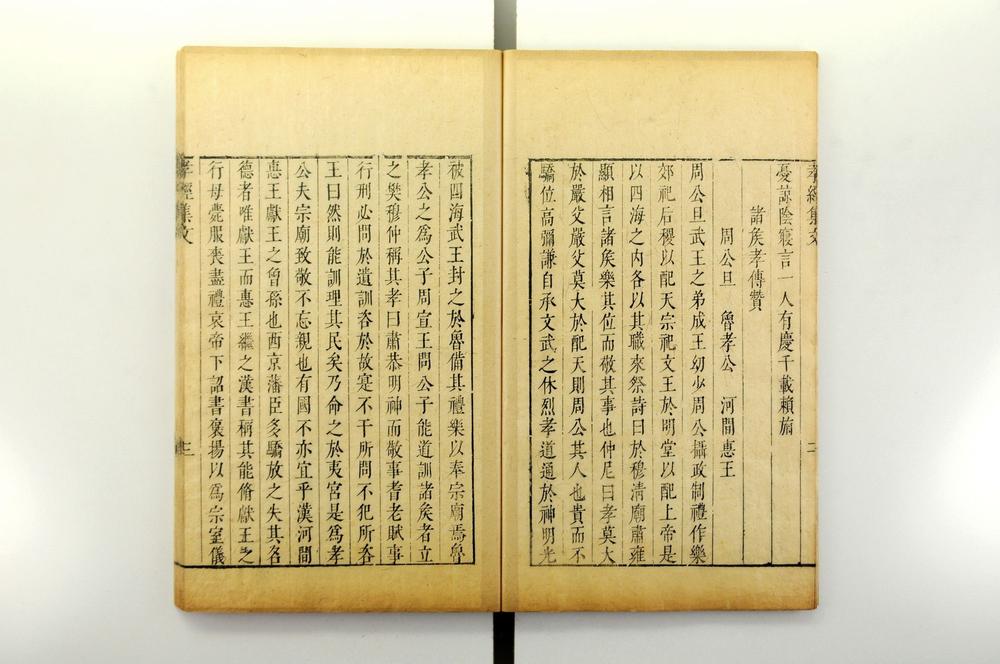 孝經集文
憂諒陰寢言一人有慶千載賴旃
諸矦孝傳贊
周公旦 魯孝公 河間惠王
周公旦武王之弟成王幼少周公攝政制禮作樂
郊祀后稷以配天宗祀文王於明堂以配上帝是
以四海之內各以其職來祭詩曰於穆清廟肅雍
顯相言諸矦樂其位而敬其事也仲尼曰孝莫大
於嚴父嚴父莫大於配天則周公其人也貴而不
驕位高彌謙自承文武之休烈孝道通於神明光
被四海武王封之於魯備其禮樂以奉宗廟焉魯
孝公之為公子周宣王問公子能道訓諸矦者立
之樊穆仲稱其孝曰肅恭明神而敬事耆老賦事
行刑必問於遺訓咨於故寔不干所問不犯所咨
王曰然則能訓理其民矣乃命之於夷宮是為孝
公夫宗廟致敬不忘親也有國不亦宜乎漢河間
惠王獻王之曾孫也西京藩臣多驕放之失其名
德者唯獻王而惠王繼之漢書稱其能脩獻王之
行母薨服喪盡禮哀帝下詔書襃揚以為宗室儀
孝經集文